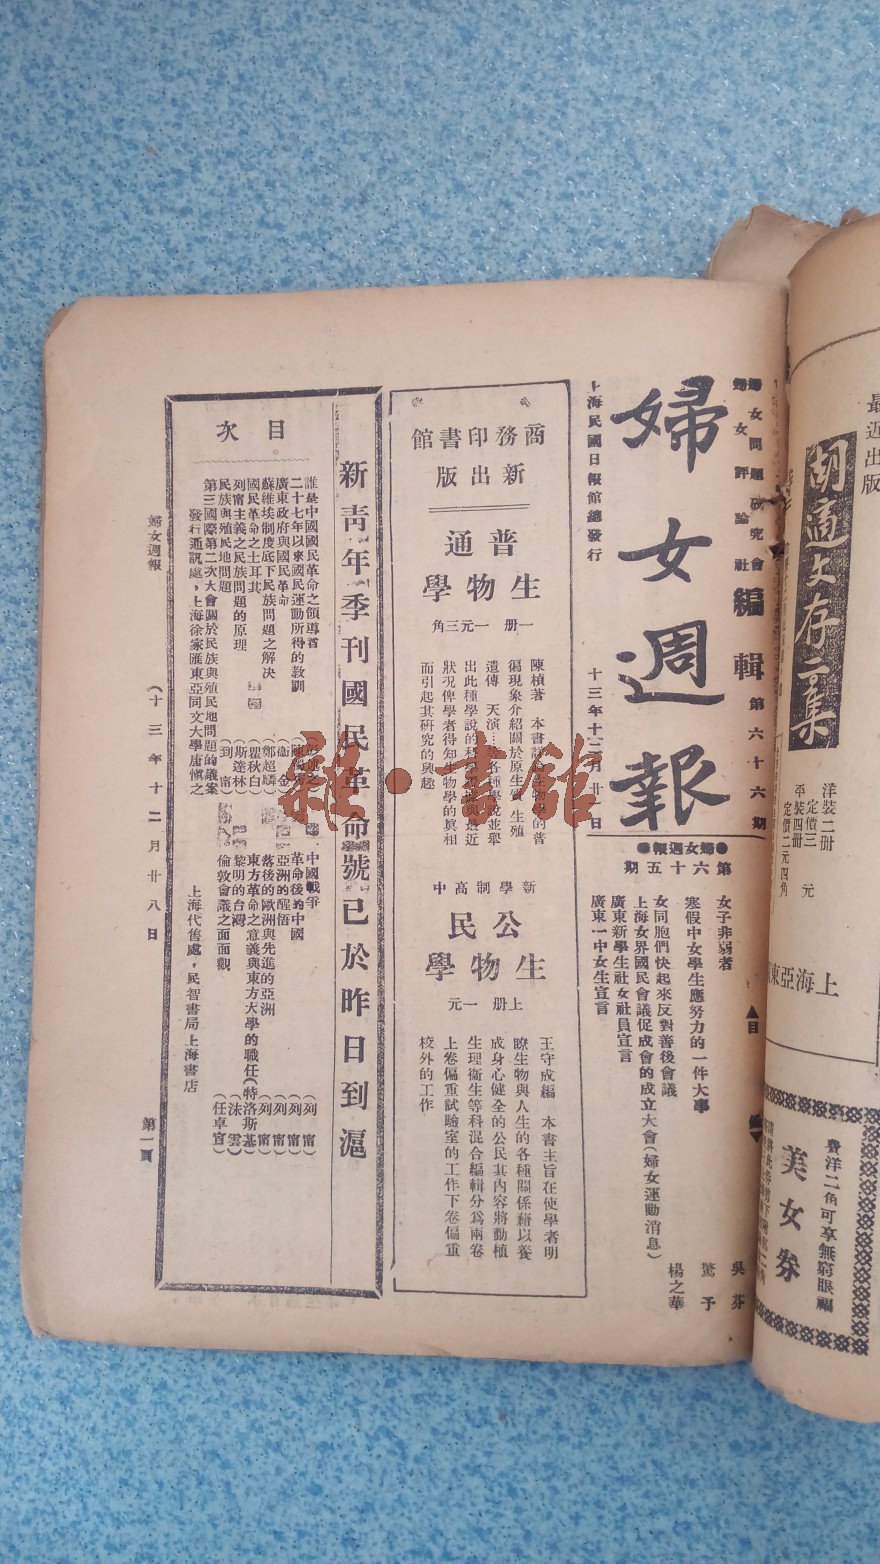 婦女問題研究會
婦女評論社
編輯
第六十六期
婦女週報
上海民國日報館總發行
十三年十二月廿日
●婦女週報●
第六十五期
▲目
女子非弱者
吳芬
寒假中女學生應努力的一件大事
驚予
女同胞們快起來反對善後會議
楊之華
上海女界國民會議促成會的成立大會(婦女運動消息)
廣東新學生社女社員宣言
廣東一中女生宣言
商務印書館
新出版
普通
生物學
一册 一元三角
陳楨著 本書詳論生物學的普
徧現象介紹關於原生質 生殖
遺傳 天演…等各種學說並舉
出此種學說的科學根據與最近
狀况俾學者得知生物學的眞相
而引起其研究的興趣
新學制高中
公民
生物學
上册 一元
王守成編 本書主旨在使學者明
瞭生物與人生的各種關係藉以養
成身心健全的公民其内容將動植
生理衞生等科混合編輯分為兩卷
上卷偏重試驗室的工作下卷偏重
校外的工作
新青年季刊國民革命號已於昨日到滬
目次
誰是中國國民革命之領導者 (彭述之)
二十七年以來國民運動所得的教訓
廣東政府與國民革命
蘇維埃制度底下民族問題之解決 (鄭超麟)
國民革命之土耳其 (瞿秋白)
列甯主義之民族問題的原理 (斯達林)
民族與殖民地問題 (列甯)
第三國際第二次大會關於民族與殖民地問題的議案
中國戰爭 (列甯)
革命後的中國 (列甯)
亞洲的醒悟 (列甯)
落後的歐洲與先進的亞洲 (列甯)
東方革命之意義與東方大學的職任(特洛斯基)
黎明的台灣 (沫雲)
倫敦會議之面面觀 (任卓宣)
發行通訊處,上海徐家匯東亞同文大學唐愼之
上海代售處,民智書局上海書店
婦女週報
(十三年十二月廿八日
第一頁
雜·書館
最近出版
胡適文存二集
洋裝二册
定價三元
平裝四册
定價二元四角
上海亞東
費洋二角可享無窮眼福
美女券